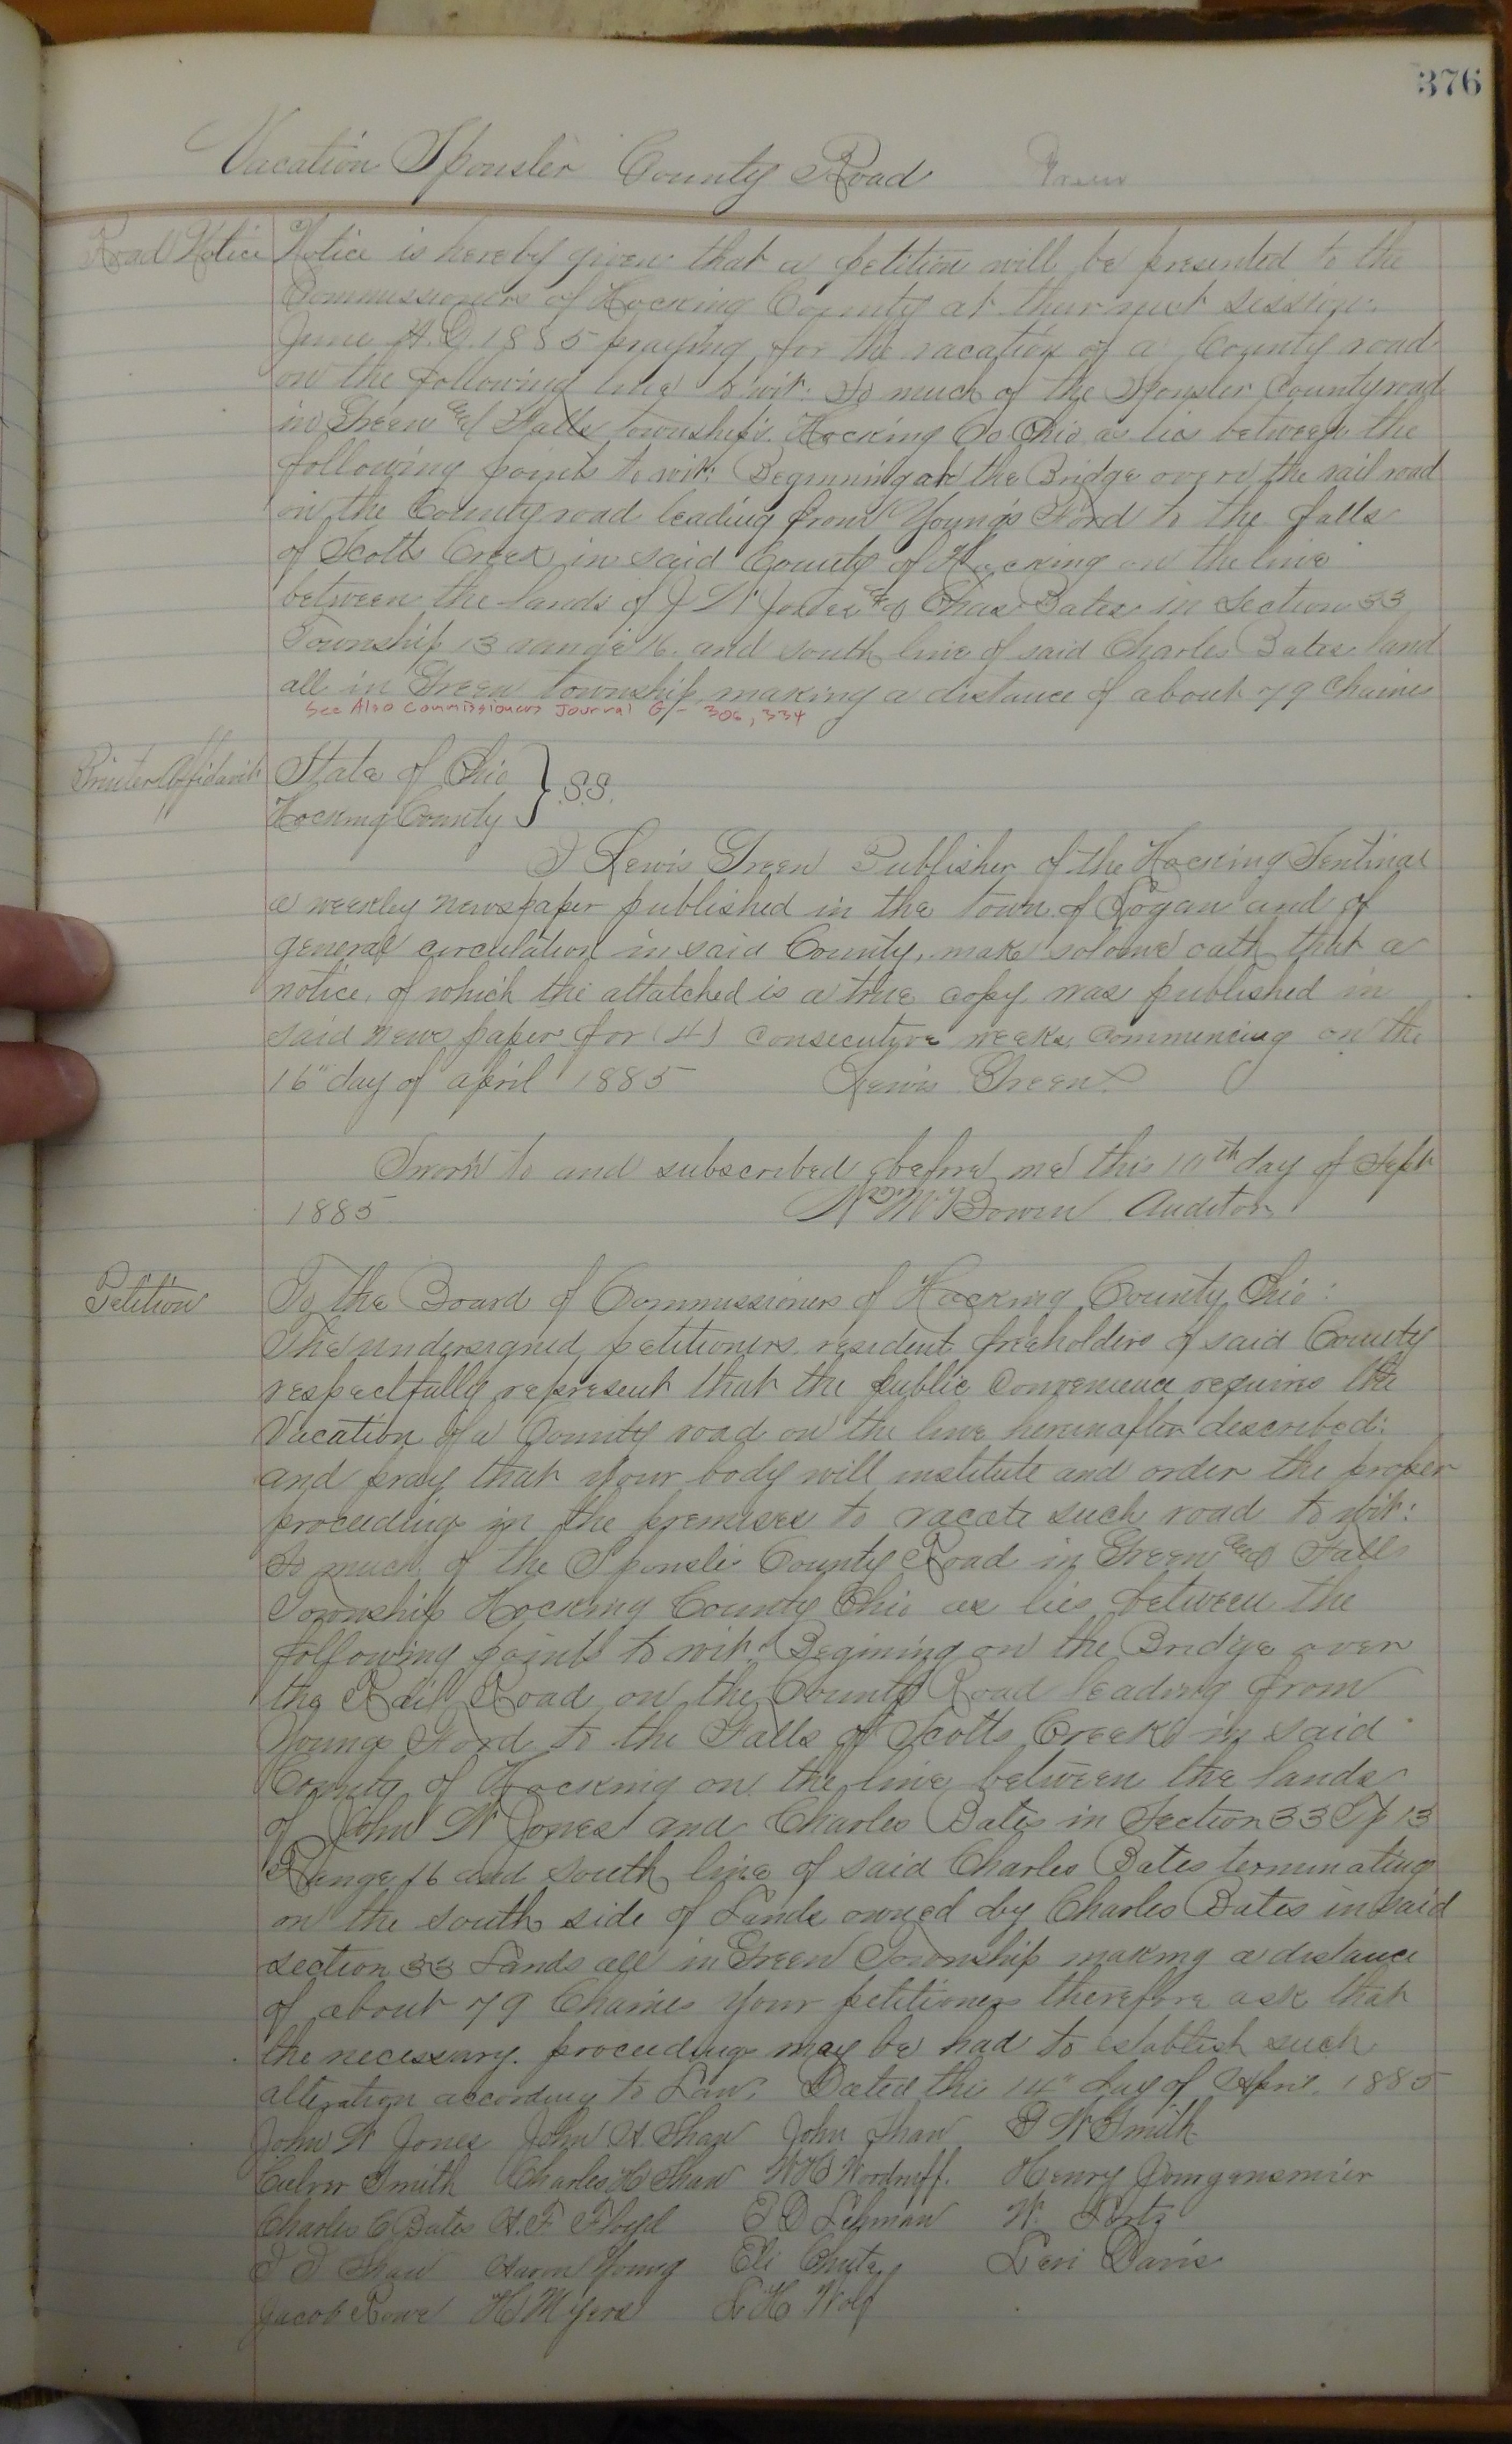 376
Vacation Sponsler County Road Green
Road Notice
Notice is hereby given that a petition will be presented to the
Commissioners of Hocking County at their next session.
June A.D. 1885 praying for the vacation of a County road
on the following line to wit: So much of the Sponsler County road
in Green and Falls townships. Hocking Co Ohio as lies between the
following points to wit: Beginning at the Bridge over the rail road
on the County road leading from Young's Ford to the falls
of Scotts Creek in said County of Hocking on the line
between the lands of J W Jones and Chas Bates in Section 33
Township 13 range 16. and south line of said Charles Bates land
all in Green township making a distance of about 79 Chains
See Also Commissioners Journal G - 306, 334
Printers Afidavit
State of Ohio } S.S.
Hocking County
I Lewis Green Publisher of the Hocking Sentinal
a weekley newspaper published in the town of Logan and of
general circulation in said County, make solome oath that a
notice, of which the attatched is a true copy was published in
said news paper for (4) consecutive weeks, commencing on the
16" day of april 1885 Lewis Green
Sworn to and subscribed before me this 10th day of Sept
1885 Wm M. Bowen Auditor
Petition
To the Board of Commissioners of Hocking County Ohio:
The undersigned, petitioners, resident freeholders of said County
respectfully represent that the public convenience requires the
Vacation of a County road on the line hereinafter described:
and pray that your body will institute and order the proper
proceeding in the premises to vacate such road to wit:
So much of the Sponsler County Road in Green and Falls
Township Hocking County Ohio as lies between the
following points to wit: Begining on the Bridge over
the Rail Road on the County Road leading from
Youngs Ford to the Falls of Scotts Creek in said
County of Hocking on the line between the lands
of John W Jones and Charles Bates in Section 33 Tp 13
Range 16 and south line of said Charles Bates terminating
on the south side of Lands owned by Charles Bates in said
section 33 Lands all in Green Township making a distance
of about 79 Chains Your petitioners therefore ask that
the necessary proceedings may be had to establish such
alteration according to Law. Dated this 14" day of April 1885
John W Jones John A. Shaw John Shaw G W Smith
Culver Smith Charles H Shaw W H Woodruff. Henry Jourgensmier
Charles C Bates A. F. Floyd Lehman W.
Shaw Aaron Young Eli Chute Levi Davis
Jacob Rowe H Myers L H Wolf